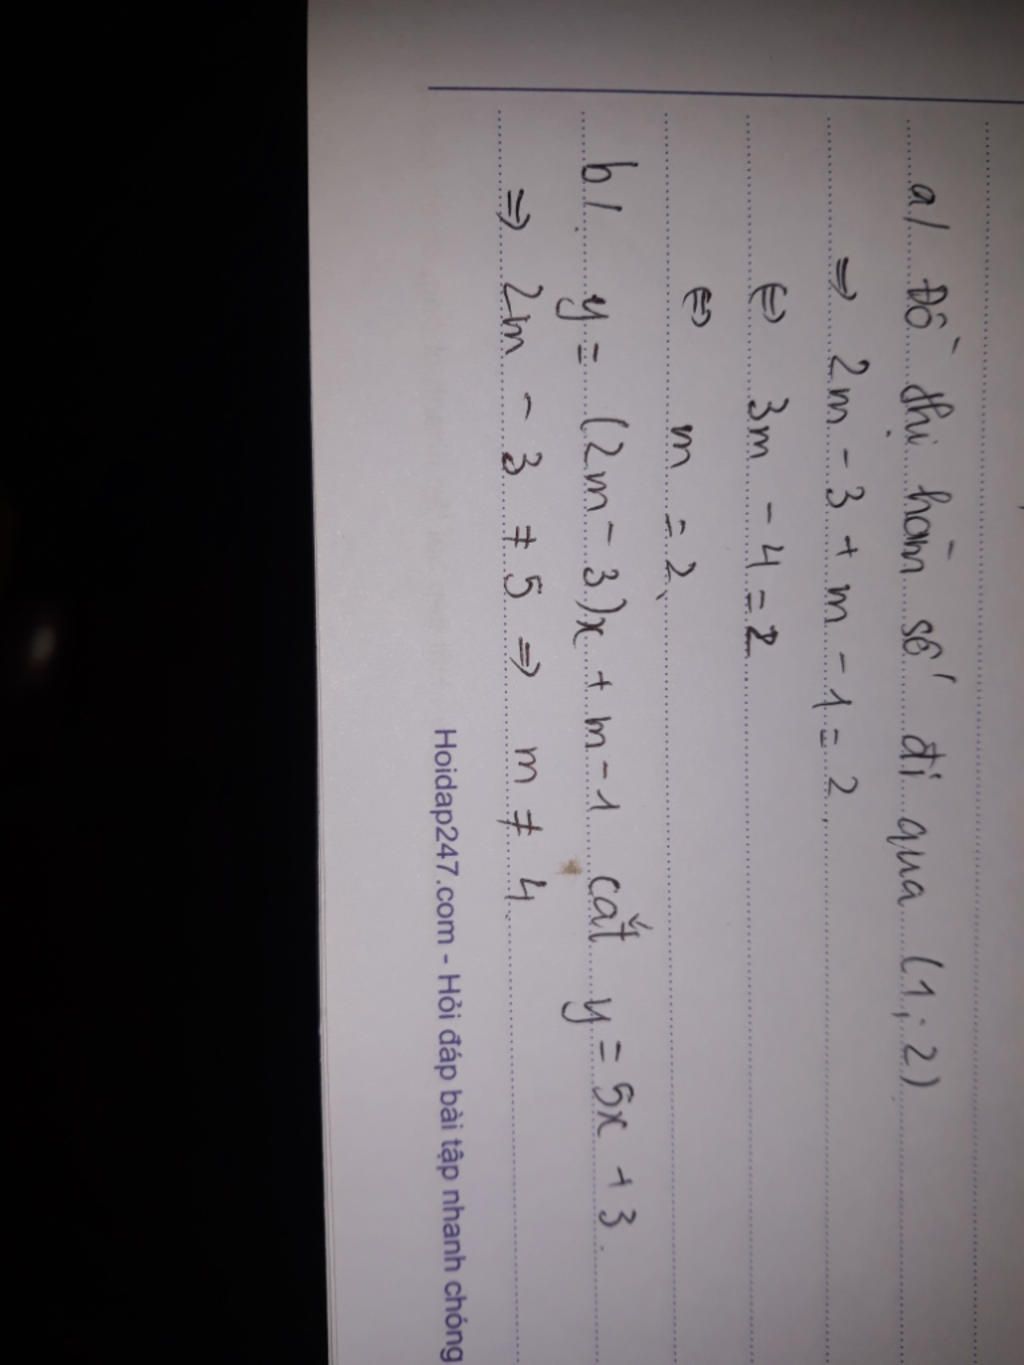 a/ Đồ thị hàm số đi qua (1; 2)
⇒ 2m - 3 + m - 1 = 2
⇔ 3m - 4 = 2
⇔ m = 2
b/ y = (2m - 3)x + m - 1 cắt y = 5x + 3.
⇒ 2m - 3 ≠ 5 ⇒ m ≠ 4
Hoidap247.com - Hỏi đáp bài tập nhanh chóng